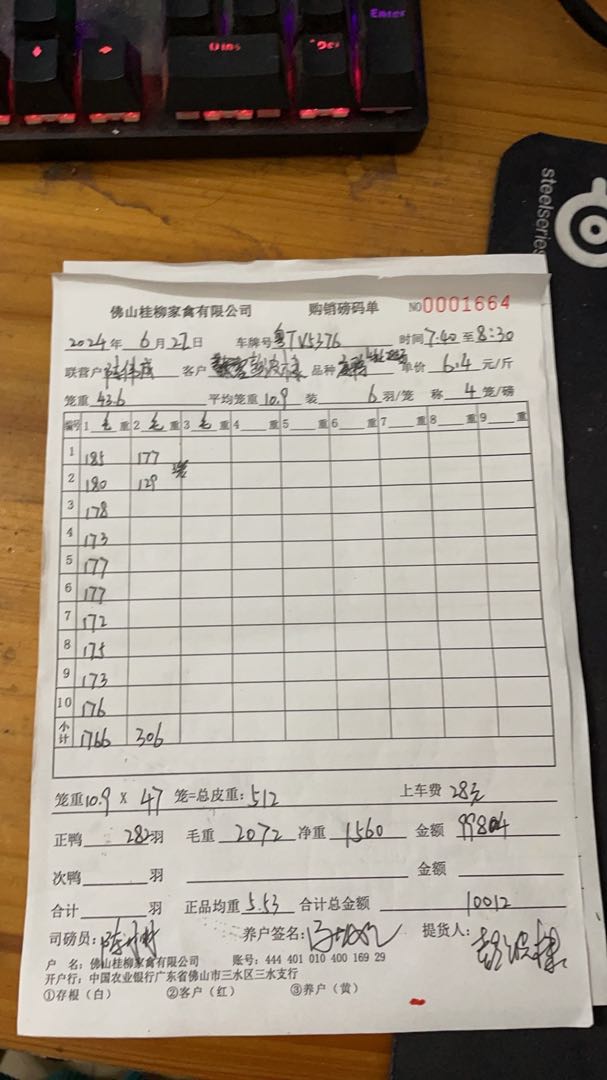 Enter
Ins
Del
steelseries
佛山桂柳家禽有限公司 购销磅码单 NO0001664
2024年 6月27日 车牌号粤TV5376 时间7:40至8:30
联营户 客户 品种 单价 6.4 元/斤
笼重 43.6 平均笼重 10.9 装 6 羽/笼 称 4 笼/磅
编号 1 毛 重 2 毛 重 3 毛 重 4 重 5 重 6 重 7 重 8 重 9 重
1 185 177
2 180 129
3 178
4 173
5 177
6 177
7 172
8 175
9 173
10 176
小计 1766 306
笼重 10.9 × 47 笼=总皮重: 512 上车费 28元
正鸭 282羽 毛重 2072 净重 1560 金额 9984
次鸭 羽 金额
合计 羽 正品均重 5.53 合计总金额 10012
司磅员: 养户签名: 提货人:
户 名: 佛山桂柳家禽有限公司 账号: 444 401 010 400 169 29
开户行: 中国农业银行广东省佛山市三水区三水支行
①存根(白) ②客户(红) ③养户(黄)